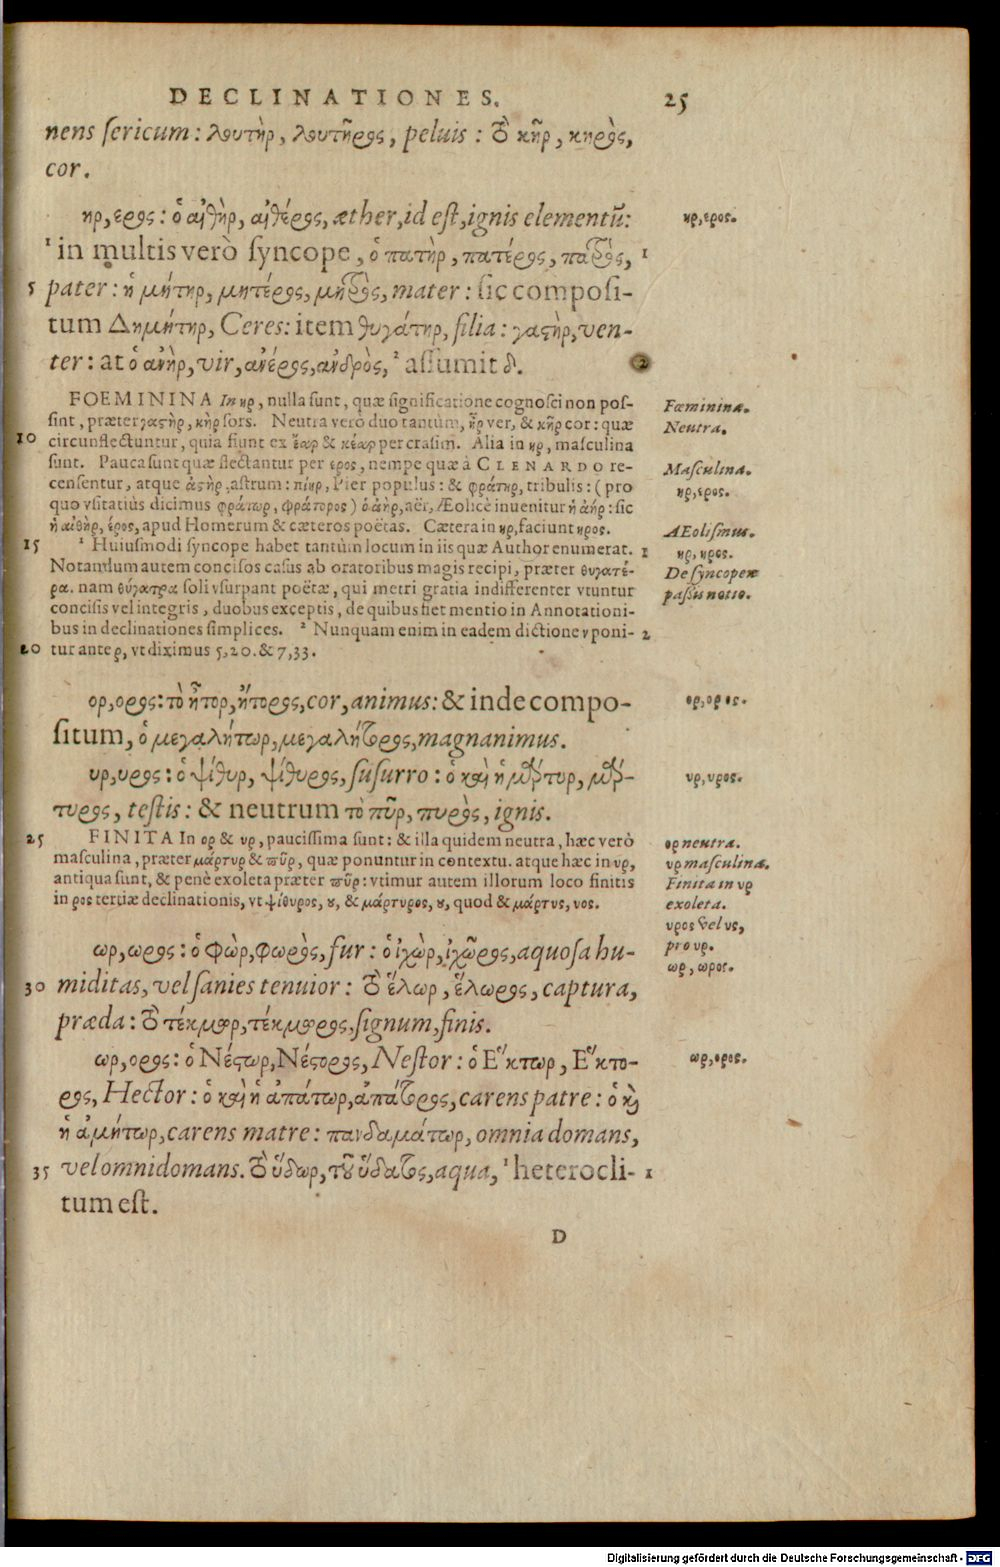 DECLINATIONES. 25
nens sericum: λουτὴρ, λουτῆρος, peluis: τὸ κῆρ, κηρὸς,
cor.
ηρ, ερος: ὁ αἰθὴρ, αἰθέρος, æther, id est, ignis elementũ: ηρ, ερος.
¹ in multis verò syncope, ὁ πατὴρ, πατέρος, πατρὸς, 1
5 pater: ἡ μήτηρ, μητέρος, μητρὸς, mater: sic composi-
tum Δημήτηρ, Ceres: item θυγάτηρ, filia: γαστὴρ, ven-
ter: at ὁ ἀνὴρ, vir, ἀνέρος, ἀνδρὸς, ² assumit δ. 2
FOEMININA In ηρ, nulla sunt, quæ significatione cognosci non pos- Fœminina.
sint, præter γαστὴρ, κὴρ sors. Neutra verò duo tantùm, ἦρ ver, & κῆρ cor: quæ Neutra.
10 circunflectuntur, quia fiunt ex ἔαρ & κέαρ per crasim. Alia in ηρ, masculina
sunt. Pauca sunt quæ flectantur per ερος, nempe quæ à CLENARDO re- Masculina.
censentur, atque ἀστὴρ, astrum: πίηρ, Pier populus: & φράτηρ, tribulis: (pro ηρ, ερος.
quo vsitatiùs dicimus φράτωρ, φράτορος) ὁ ἀὴρ, aër, Æolicè inuenitur ἡ ἀήρ: sic
ἡ αἰθὴρ, έρος, apud Homerum & cæteros poëtas. Cætera in ηρ, faciunt ηρος. Æolismus.
15 ¹ Huiusmodi syncope habet tantùm locum in iis quæ Author enumerat. 1 ηρ, ηρος.
Notandum autem concisos casus ab oratoribus magis recipi, præter θυγατέ- De syncope
ρα. nam θύγατρα soli vsurpant poëtæ, qui metri gratia indifferenter vtuntur
concisis vel integris, duobus exceptis, de quibus fiet mentio in Annotationi-
bus in declinationes simplices. ² Nunquam enim in eadem dictione ν poni- 2
20 tur ante ρ, vt diximus 5, 20. & 7, 33.
ορ, ορος: τὸ ἦτορ, ἤτορος, cor, animus: & inde compo- ορ, ορος.
situm, ὁ μεγαλήτωρ, μεγαλήτορος, magnanimus.
υρ, υρος: ὁ ψίθυρ, ψίθυρος, susurro: ὁ καὶ ἡ μάρτυρ, μάρ- υρ, υρος.
τυρος, testis: & neutrum τὸ πῦρ, πυρὸς, ignis.
25 FINITA In ορ & υρ, paucissima sunt: & illa quidem neutra, hæc verò ορ neutra.
masculina, præter μάρτυρ & πῦρ, quæ ponuntur in contextu. atque hæc in υρ, υρ masculina.
antiqua sunt, & penè exoleta præter πῦρ: vtimur autem illorum loco finitis Finita in υρ
in ρος tertiæ declinationis, vt ψίθυρος, ου, & μάρτυρος, ου, quod & μάρτυς, υος. exoleta.
υρος vel υς,
pro υρ.
ωρ, ωρος: ὁ φὼρ, φωρὸς, fur: ὁ ἰχὼρ, ἰχῶρος, aquosa hu- ωρ, ωρος.
30 miditas, vel sanies tenuior: τὸ ἕλωρ, ἕλωρος, captura,
præda: τὸ τέκμωρ, τέκμωρος, signum, finis.
ωρ, ορος: ὁ Νέστωρ, Νέστορος, Nestor: ὁ Ἕκτωρ, Ἕκτο- ωρ, ορος.
ρος, Hector: ὁ καὶ ἡ ἀπάτωρ, ἀπάτορος, carens patre: ὁ καὶ
ἡ ἀμήτωρ, carens matre: πανδαμάτωρ, omnia domans,
35 vel omnidomans. τὸ ὕδωρ, τοῦ ὕδατος, aqua, ¹ heterocli- 1
tum est.
D
Digitalisierung gefördert durch die Deutsche Forschungsgemeinschaft - DFG